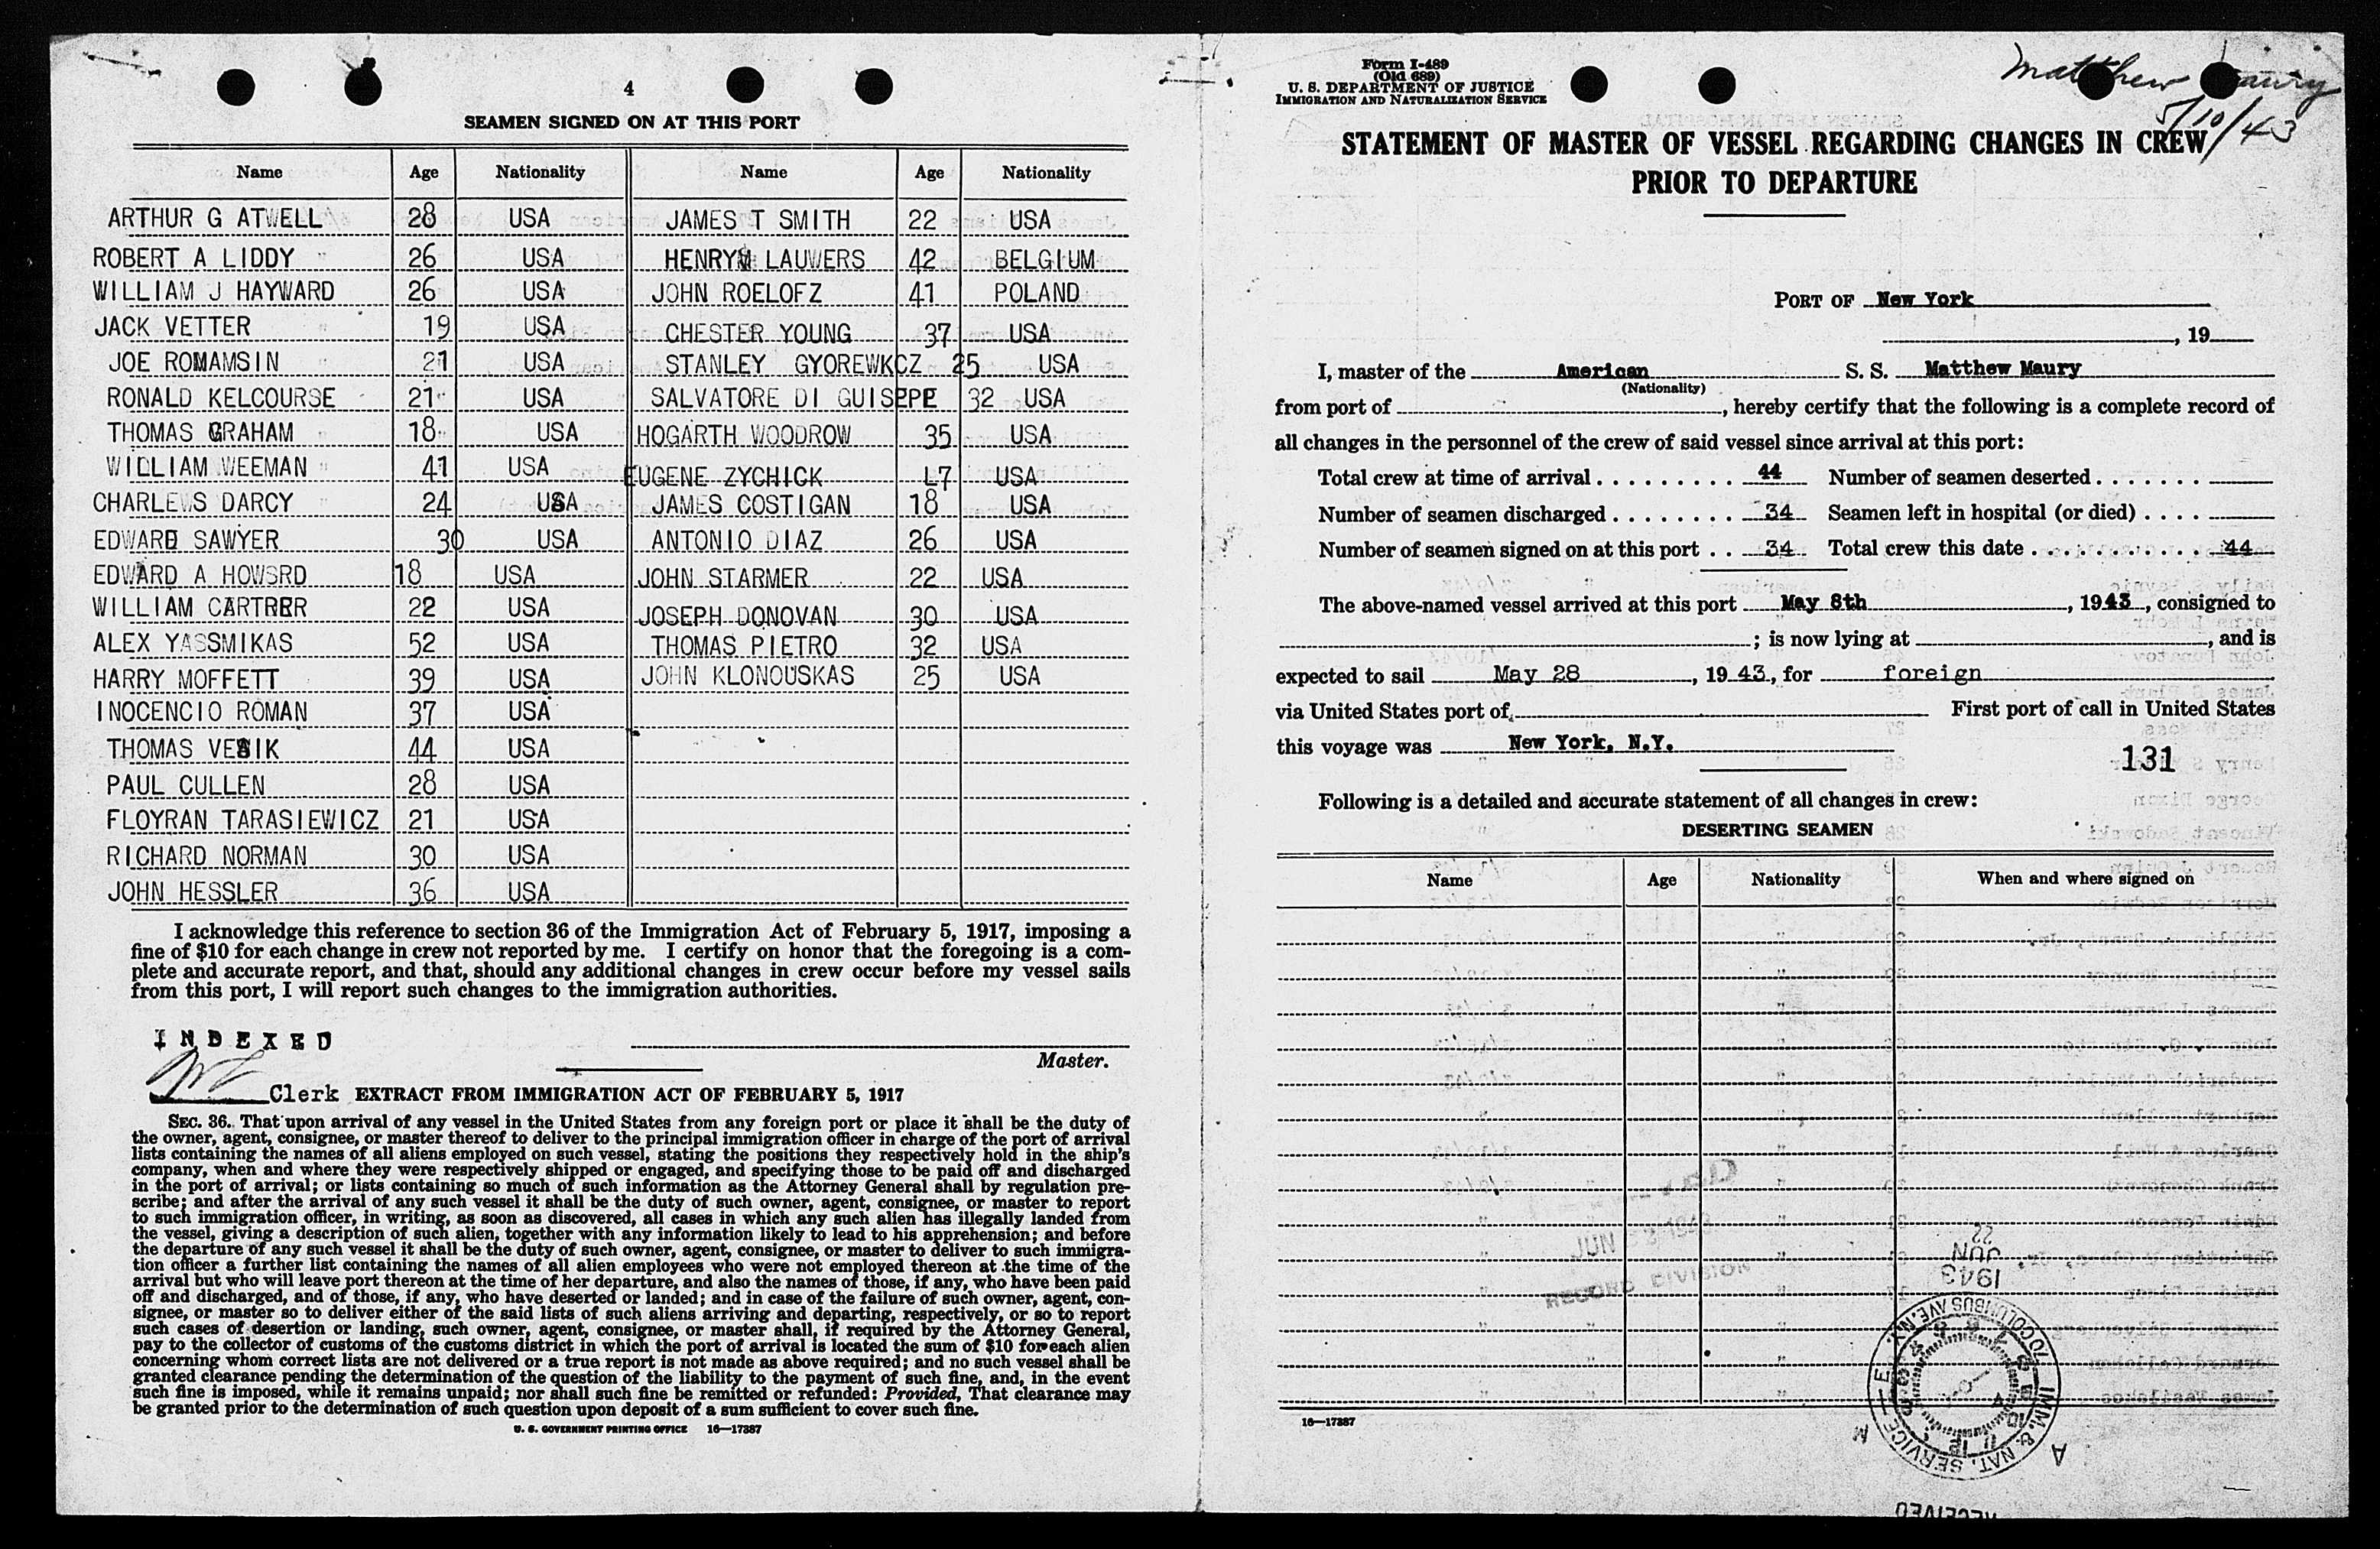 4
SEAMEN SIGNED ON AT THIS PORT
Name Age Nationality Name Age Nationality
ARTHUR G ATWELL 28 USA JAMES T SMITH 22 USA
ROBERT A LIDDY 26 USA HENRY LAUWERS 42 BELGIUM
WILLIAM J HAYWARD 26 USA JOHN ROELOFZ 41 POLAND
JACK VETTER 19 USA CHESTER YOUNG 37 USA
JOE ROMAMSIN 21 USA STANLEY GYOREWKCZ 25 USA
RONALD KELCOURSE 21 USA SALVATORE DI GUISEPE 32 USA
THOMAS GRAHAM 18 USA HOGARTH WOODROW 35 USA
WILLIAM WEEMAN 41 USA EUGENE ZYCHICK L7 USA
CHARLEWS DARCY 24 USA JAMES COSTIGAN 18 USA
EDWARD SAWYER 30 USA ANTONIO DIAZ 26 USA
EDWARD A HOWSRD 18 USA JOHN STARMER 22 USA
WILLIAM CARTRER 22 USA JOSEPH DONOVAN 30 USA
ALEX YASSMIKAS 52 USA THOMAS PIETRO 32 USA
HARRY MOFFETT 39 USA JOHN KLONOUSKAS 25 USA
INOCENCIO ROMAN 37 USA
THOMAS 44 USA
PAUL CULLEN 28 USA
FLOYRAN TARASIEWICZ 21 USA
RICHARD NORMAN 30 USA
JOHN HESSLER 36 USA
I acknowledge this reference to section 36 of the Immigration Act of February 5, 1917, imposing a
fine of $10 for each change in crew not reported by me. I certify on honor that the foregoing is a com-
plete and accurate report, and that, should any additional changes in crew occur before my vessel sails
from this port, I will report such changes to the immigration authorities.
INDEXED
Master.
Clerk EXTRACT FROM IMMIGRATION ACT OF FEBRUARY 5, 1917
SEC. 36. That upon arrival of any vessel in the United States from any foreign port or place it shall be the duty of
the owner, agent, consignee, or master thereof to deliver to the principal immigration officer in charge of the port of arrival
lists containing the names of all aliens employed on such vessel, stating the positions they respectively hold in the ship's
company, when and where they were respectively shipped or engaged, and specifying those to be paid off and discharged
in the port of arrival; or lists containing so much of such information as the Attorney General shall by regulation pre-
scribe; and after the arrival of any such vessel it shall be the duty of such owner, agent, consignee, or master to report
to such immigration officer, in writing, as soon as discovered, all cases in which any such alien has illegally landed from
the vessel, giving a description of such alien, together with any information likely to lead to his apprehension; and before
the departure of any such vessel it shall be the duty of such owner, agent, consignee, or master to deliver to such immigra-
tion officer a further list containing the names of all alien employees who were not employed thereon at the time of the
arrival but who will leave port thereon at the time of her departure, and also the names of those, if any, who have been paid
off and discharged, and of those, if any, who have deserted or landed; and in case of the failure of such owner, agent, con-
signee, or master so to deliver either of the said lists of such aliens arriving and departing, respectively, or so to report
such cases of desertion or landing, such owner, agent, consignee, or master shall, if required by the Attorney General,
pay to the collector of customs of the customs district in which the port of arrival is located the sum of $10 for each alien
concerning whom correct lists are not delivered or a true report is not made as above required; and no such vessel shall be
granted clearance pending the determination of the question of the liability to the payment of such fine, and, in the event
such fine is imposed, while it remains unpaid; nor shall such fine be remitted or refunded: Provided, That clearance may
be granted prior to the determination of such question upon deposit of a sum sufficient to cover such fine.
U. S. GOVERNMENT PRINTING OFFICE 16—17387
Form I-489
(Old 689)
U. S. DEPARTMENT OF JUSTICE
IMMIGRATION AND NATURALIZATION SERVICE
Matthew Maury
5/10/43
STATEMENT OF MASTER OF VESSEL REGARDING CHANGES IN CREW
PRIOR TO DEPARTURE
PORT OF New York
, 19
I, master of the American S. S. Matthew Maury
(Nationality)
from port of , hereby certify that the following is a complete record of
all changes in the personnel of the crew of said vessel since arrival at this port:
Total crew at time of arrival . . . . . . . . . 44 Number of seamen deserted . . . . . . .
Number of seamen discharged . . . . . . . . 34 Seamen left in hospital (or died) . . . .
Number of seamen signed on at this port . . 34 Total crew this date . . . . . . . . . . . 44
The above-named vessel arrived at this port May 8th , 1943 , consigned to
; is now lying at , and is
expected to sail May 28 , 19 43 , for foreign
via United States port of First port of call in United States
this voyage was New York, N.Y.
131
Following is a detailed and accurate statement of all changes in crew:
DESERTING SEAMEN
Name Age Nationality When and where signed on
JUN 1943
RECORD DIVISION
22
JUN
1943
IMM. & NAT. SERVICE — E. 70 COLUMBUS AVE. N.Y.
A M
16—17387
RECEIVED